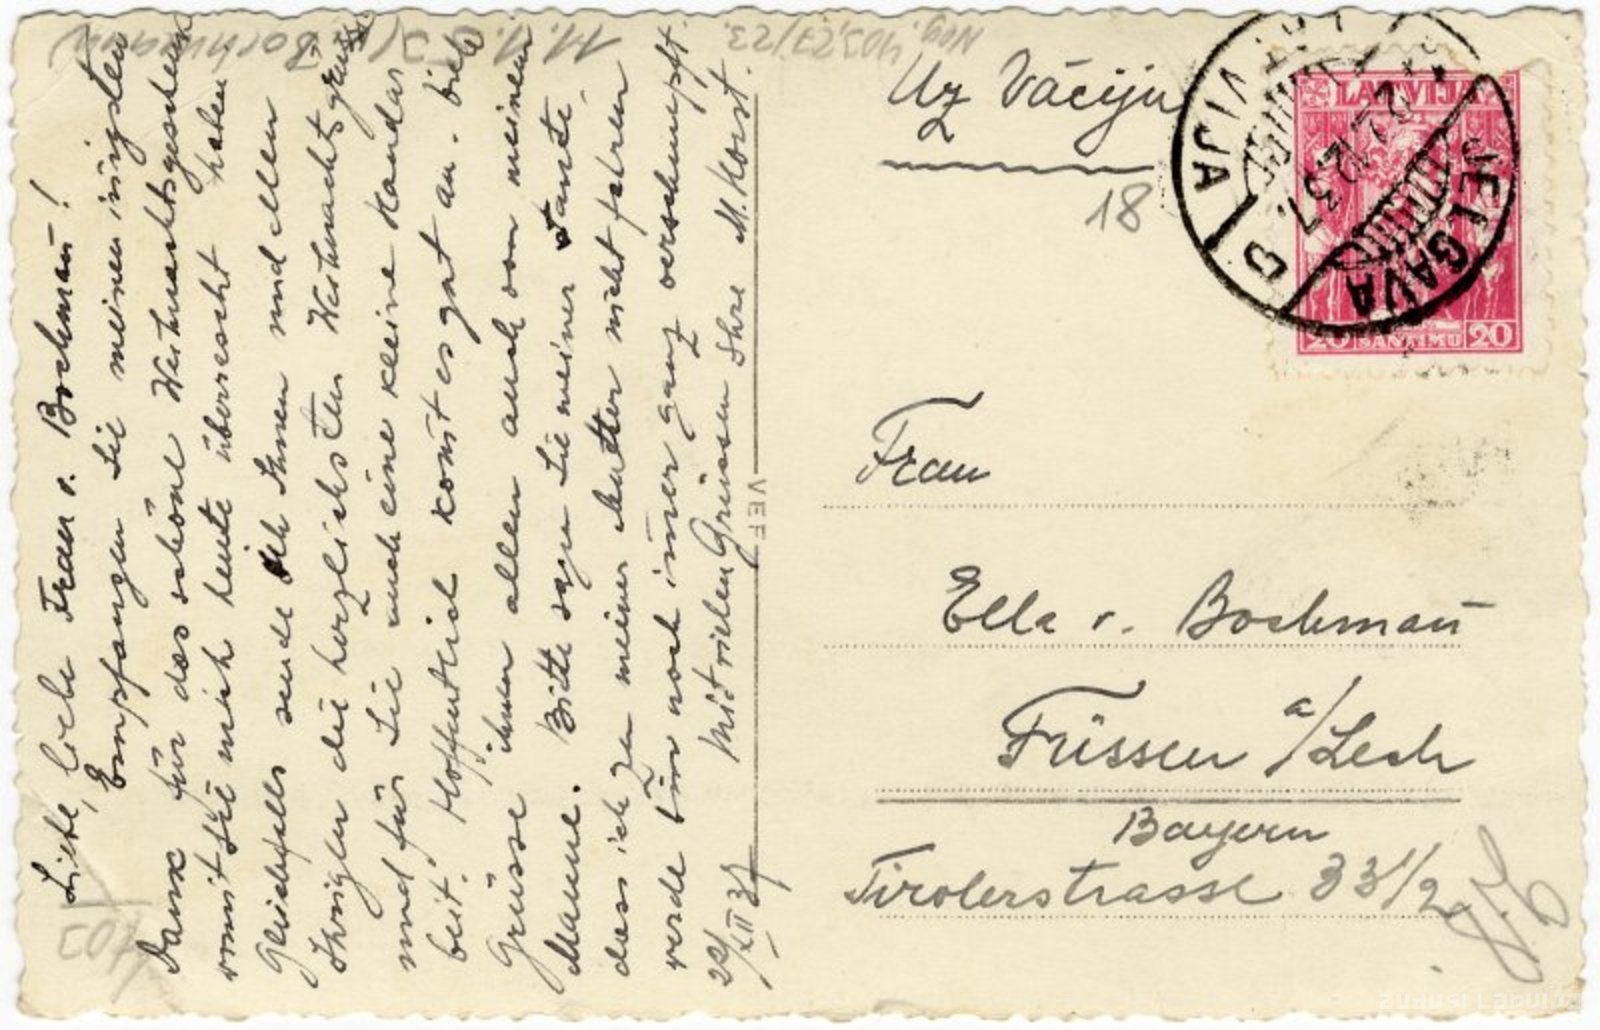 Liebe, liebe Frau v. Bochmañ!
Empfangen Sie meinen innigsten
Dank für das schöne Weihnachtsgeschenk
womit Sie mich heute überrascht haben
Gleichfalls sende ich Ihnen und allen
Ihrigen die herzlichsten Weihnachtsgrüsse
und für Sie auch eine kleine
bei. Hoffentlich komt es gut an. bitte
Grüsse ihnen allen auch von meinem
Manne. Bitte sagen Sie meiner Tante,
dass ich zu meiner Mutter nicht fahren
werde bin noch imer ganz verschnupft.
Mit vielen Grüssen Ihre M. Korst.
22/XII 37
VEF
Uz Vāciju
18
LATVIJA
20 SANTIMU 20
JELGAVA
LATVIJA
22 12 37
D
Frau
Ella v. Bochmañ
Füssen a/Lech
Bayern
Tirolerstrasse 33 1/2
Neg. 403,27/23.
103
zudusi Latvija